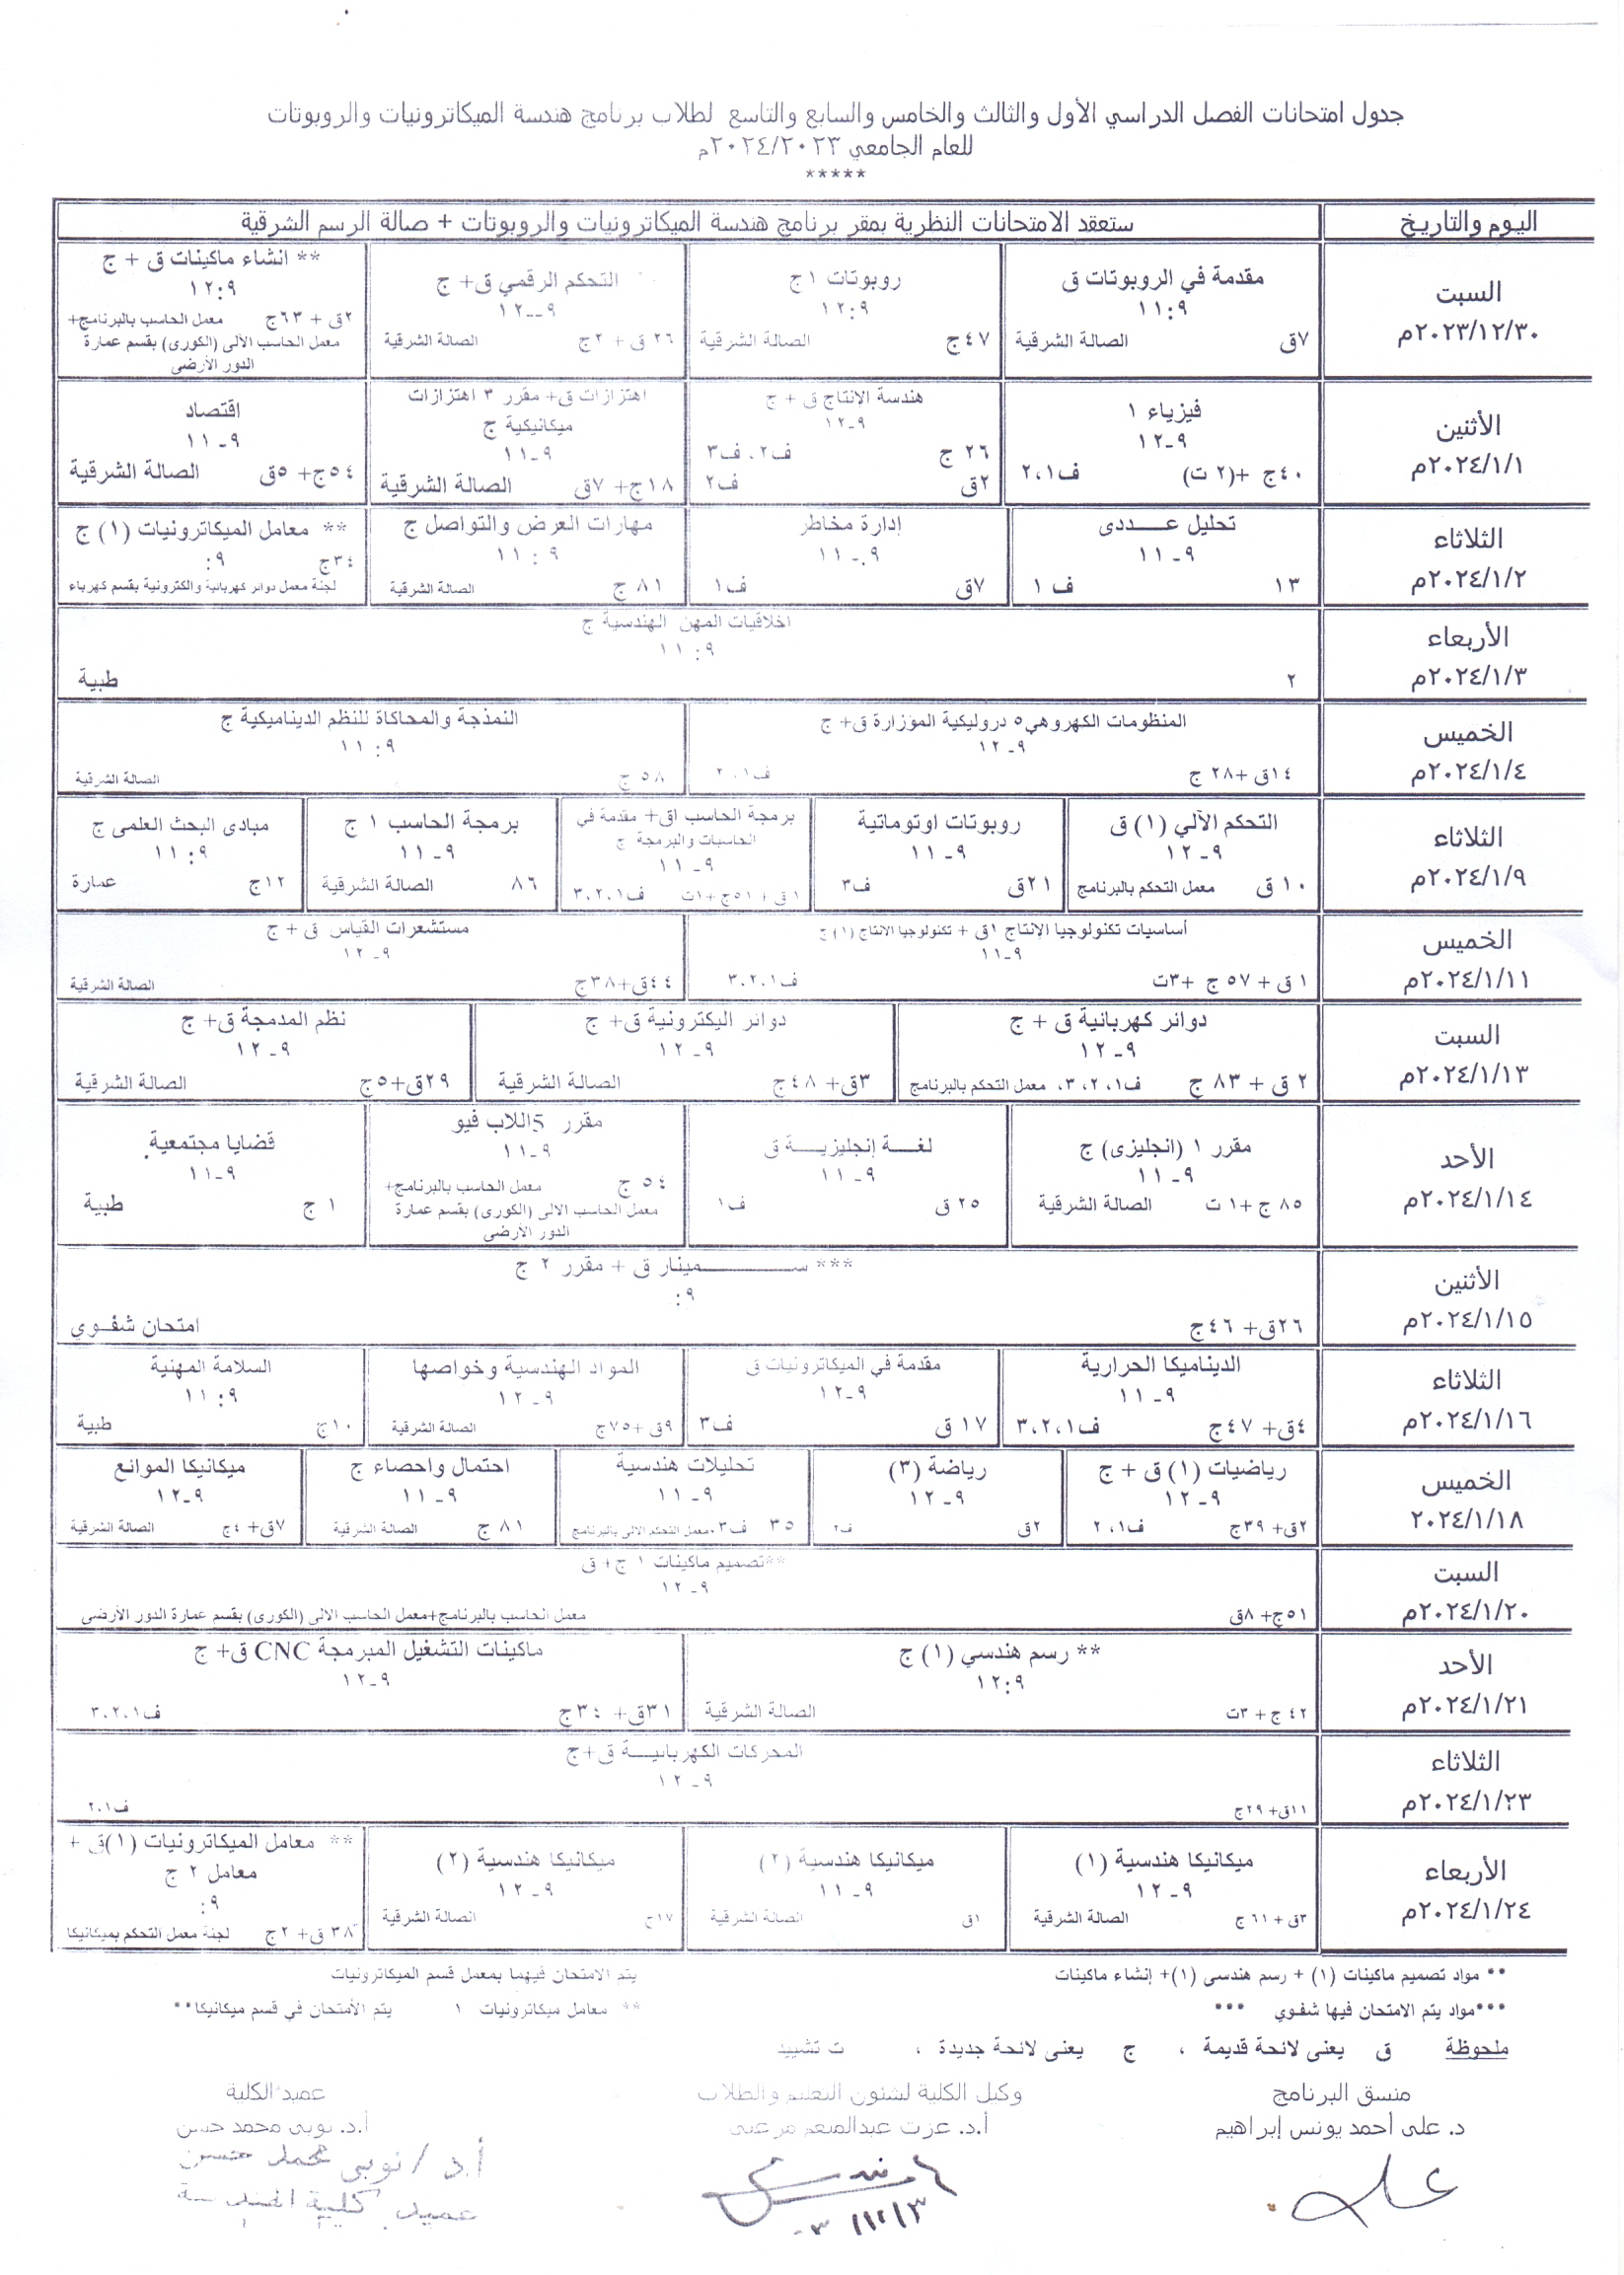 جدول امتحانات الفصل الدراسي الأول والثالث والخامس والسابع والتاسع لطلاب برنامج هندسة الميكاترونيات والروبوتات
للعام الجامعي ٢٠٢٤/٢٠٢٣م
*****
اليوم والتاريخ
ستعقد الامتحانات النظرية بمقر برنامج هندسة الميكاترونيات والروبوتات + صالة الرسم الشرقية
السبت
٢٠٢٣/١٢/٣٠م
مقدمة في الروبوتات ق
١١:٩
٧ق الصالة الشرقية
روبوتات ١ ج
١٢:٩
٤٧ج الصالة الشرقية
التحكم الرقمي ق+ ج
٩--١٢
٢٦ ق + ٢ج الصالة الشرقية
** انشاء ماكينات ق + ج
١٢:٩
٢ق + ٦٣ج معمل الحاسب بالبرنامج+
معمل الحاسب الألى (الكورى) بقسم عمارة
الدور الأرضى
الأثنين
٢٠٢٤/١/١م
فيزياء ١
٩-١٢
٤٠ج +(٢ ت) ف٢،١
هندسة الإنتاج ق + ج
٩-١٢
٢٦ ج ف٢، ف٣
٢ق ف٢
اهتزازات ق+ مقرر ٣ اهتزازات
ميكانيكية ج
٩-١١
١٨ج+ ٧ق الصالة الشرقية
اقتصاد
٩-١١
٥٤ج+ ٥ق الصالة الشرقية
الثلاثاء
٢٠٢٤/١/٢م
تحليل عـــددى
٩-١١
١٣ ف ١
إدارة مخاطر
٩-١١
٧ق ف١
مهارات العرض والتواصل ج
٩: ١١
٨١ ج الصالة الشرقية
** معامل الميكاترونيات (١) ج
٣٤ج ٩:
لجنة معمل دوائر كهربائية والكترونية بقسم كهرباء
الأربعاء
٢٠٢٤/١/٣م
اخلاقيات المهن الهندسية ج
٩: ١١
٢ طبية
الخميس
٢٠٢٤/١/٤م
المنظومات الكهروهي٥ دروليكية الموزارة ق+ ج
٩-١٢
١٤ق +٢٨ ج ف٢،١
النمذجة والمحاكاة للنظم الديناميكية ج
٩: ١١
٥٨ ج الصالة الشرقية
الثلاثاء
٢٠٢٤/١/٩م
التحكم الآلي (١) ق
٩-١٢
١٠ ق معمل التحكم بالبرنامج
روبوتات اوتوماتية
٩-١١
٢١ق ف٣
برمجة الحاسب ١ق+ مقدمة في
الحاسبات والبرمجة ج
٩-١١
١ق + ٥١ج +١ت ف٣،٢،١
برمجة الحاسب ١ ج
٩-١١
٨٦ الصالة الشرقية
مبادى البحث العلمى ج
٩: ١١
١٢ج عمارة
الخميس
٢٠٢٤/١/١١م
أساسيات تكنولوجيا الإنتاج ١ق + تكنولوجيا الانتاج (١) ج
٩-١١
١ق + ٥٧ ج +٣ت ف٣،٢،١
مستشعرات القياس ق + ج
٩-١٢
٤٤ق+٣٨ج الصالة الشرقية
السبت
٢٠٢٤/١/١٣م
دوائر كهربائية ق + ج
٩-١٢
٢ ق + ٨٣ ج ف٣،٢،١، معمل التحكم بالبرنامج
دوائر اليكترونية ق+ ج
٩-١٢
٣ق+ ٤٨ج الصالة الشرقية
نظم المدمجة ق+ ج
٩-١٢
٢٩ق+٥ج الصالة الشرقية
الأحد
٢٠٢٤/١/١٤م
مقرر ١ (انجليزى) ج
٩-١١
٨٥ ج +١ ت الصالة الشرقية
لغـــة إنجليزيـــة ق
٩-١١
٢٥ ق ف١
مقرر 5اللاب فيو
٩-١١
٥٤ ج معمل الحاسب بالبرنامج+
معمل الحاسب الالى (الكورى) بقسم عمارة
الدور الأرضى
قضايا مجتمعية
٩-١١
١ ج طبية
الأثنين
٢٠٢٤/١/١٥م
*** ســـــمينار ق + مقرر ٢ ج
٩:
٢٦ق+ ٤٦ج امتحان شفـوي
الثلاثاء
٢٠٢٤/١/١٦م
الديناميكا الحرارية
٩-١١
٤ق+ ٤٧ج ف٣،٢،١
مقدمة في الميكاترونيات ق
٩-١٢
١٧ ق ف٣
المواد الهندسية وخواصها
٩-١٢
٩ق +٧٥ج الصالة الشرقية
السلامة المهنية
٩: ١١
١٠ج طبية
الخميس
٢٠٢٤/١/١٨
رياضيات (١) ق + ج
٩-١٢
٢ق+ ٣٩ج ف٢،١
رياضة (٣)
٩-١٢
٢ق ف٢
تحليلات هندسية
٩-١١
٣٥ ف٣،معمل التحكم الالى بالبرنامج
احتمال واحصاء ج
٩-١١
٨١ ج الصالة الشرقية
ميكانيكا الموائع
٩-١٢
٧ق+ ٤ج الصالة الشرقية
السبت
٢٠٢٤/١/٢٠م
**تصميم ماكينات ١ ج+ ق
٩-١٢
٥١ج+ ٨ق معمل الحاسب بالبرنامج+معمل الحاسب الالى (الكورى) بقسم عمارة الدور الأرضى
الأحد
٢٠٢٤/١/٢١م
** رسم هندسي (١) ج
١٢:٩
٤٢ ج + ٣ت الصالة الشرقية
ماكينات التشغيل المبرمجة CNC ق+ ج
٩-١٢
٣١ق+ ٣٤ج ف٣،٢،١
الثلاثاء
٢٠٢٤/١/٢٣م
المحركات الكهربائيـــة ق+ج
٩-١٢
١١ق+ ٢٩ج ف٢،١
الأربعاء
٢٠٢٤/١/٢٤م
ميكانيكا هندسية (١)
٩-١٢
٣ق + ٦١ ج الصالة الشرقية
ميكانيكا هندسية (٢)
٩-١١
١ق الصالة الشرقية
ميكانيكا هندسية (٢)
٩-١٢
١٧ج الصالة الشرقية
** معامل الميكاترونيات (١)ق +
معامل ٢ ج
٩:
٣٨ ق+ ٢ج لجنة معمل التحكم بميكانيكا
** مواد تصميم ماكينات (١) + رسم هندسى (١)+ إنشاء ماكينات يتم الامتحان فيهما بمعمل قسم الميكاترونيات
***مواد يتم الامتحان فيها شفوي *** ** معامل ميكاترونيات ١ يتم الأمتحان في قسم ميكانيكا**
ملحوظة ق يعنى لائحة قديمة ، ج يعنى لائحة جديدة ، ت تشييد
منسق البرنامج
د. على أحمد يونس إبراهيم
وكيل الكلية لشئون التعليم والطلاب
أ.د. عزت عبدالمنعم مرعى
عميد الكلية
أ.د. نوبى محمد حسن
أ.د / نوبى محمد حسن
عميد كلية الهندسة